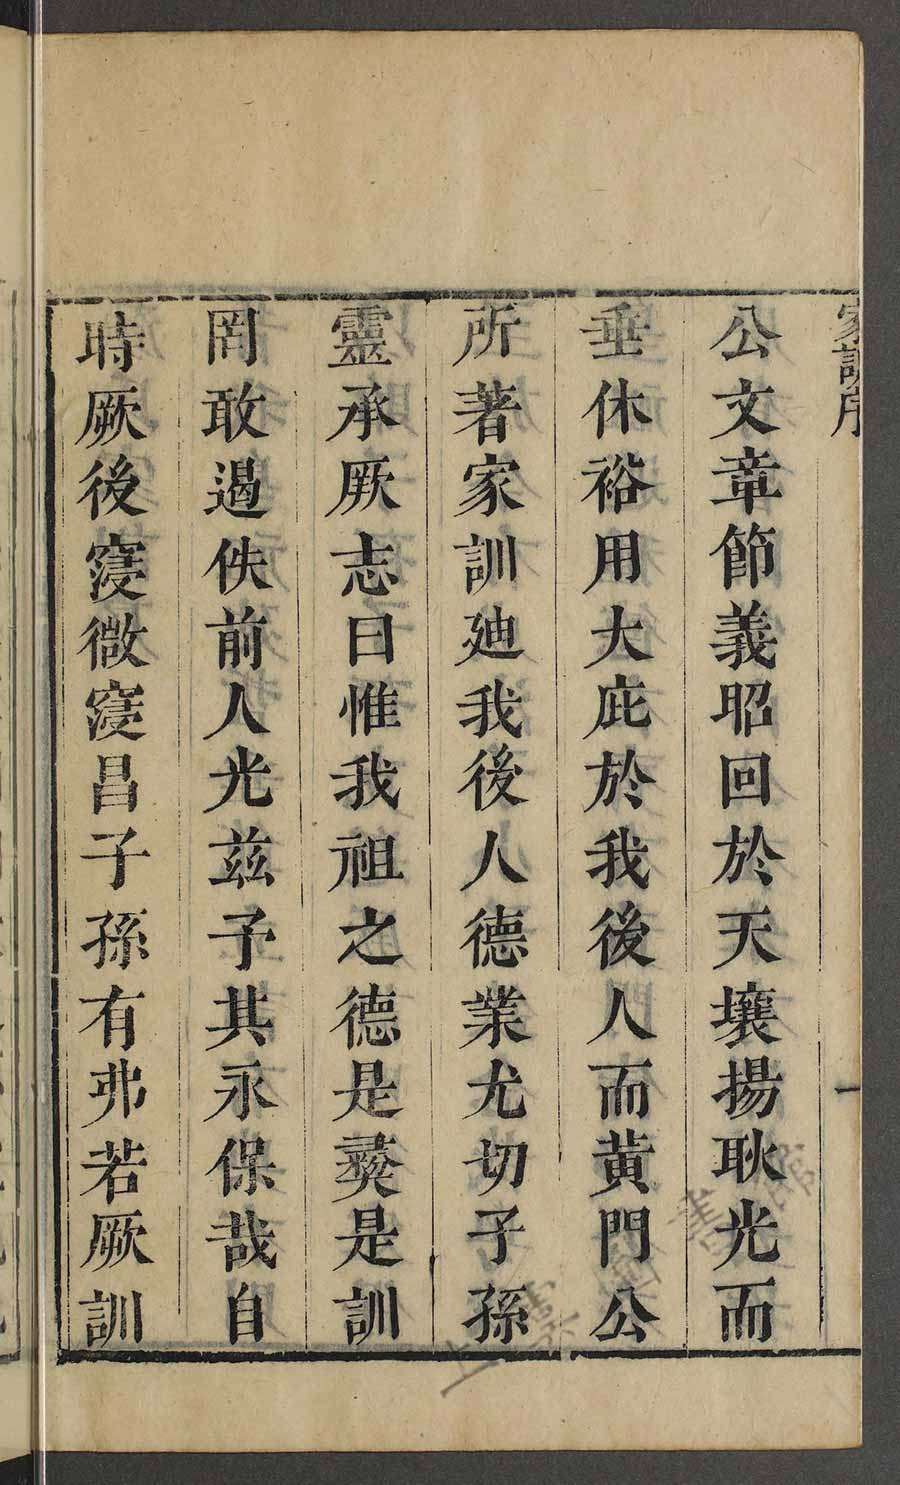 家訓序
一
公文章節義昭回於天壤揚耿光而
垂休裕用大庇於我後人而黄門公
所著家訓廸我後人德業尤切子孫
靈承厥志曰惟我祖之德是彝是訓
罔敢遏佚前人光兹予其永保哉自
時厥後寖微寖昌子孫有弗若厥訓